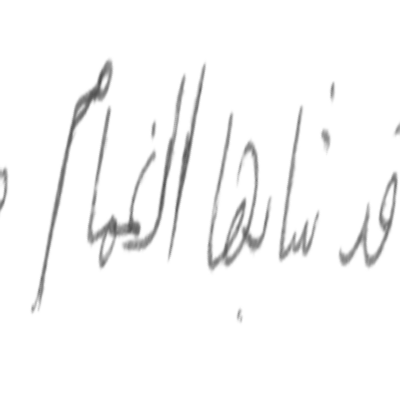 قد شابها الغمام